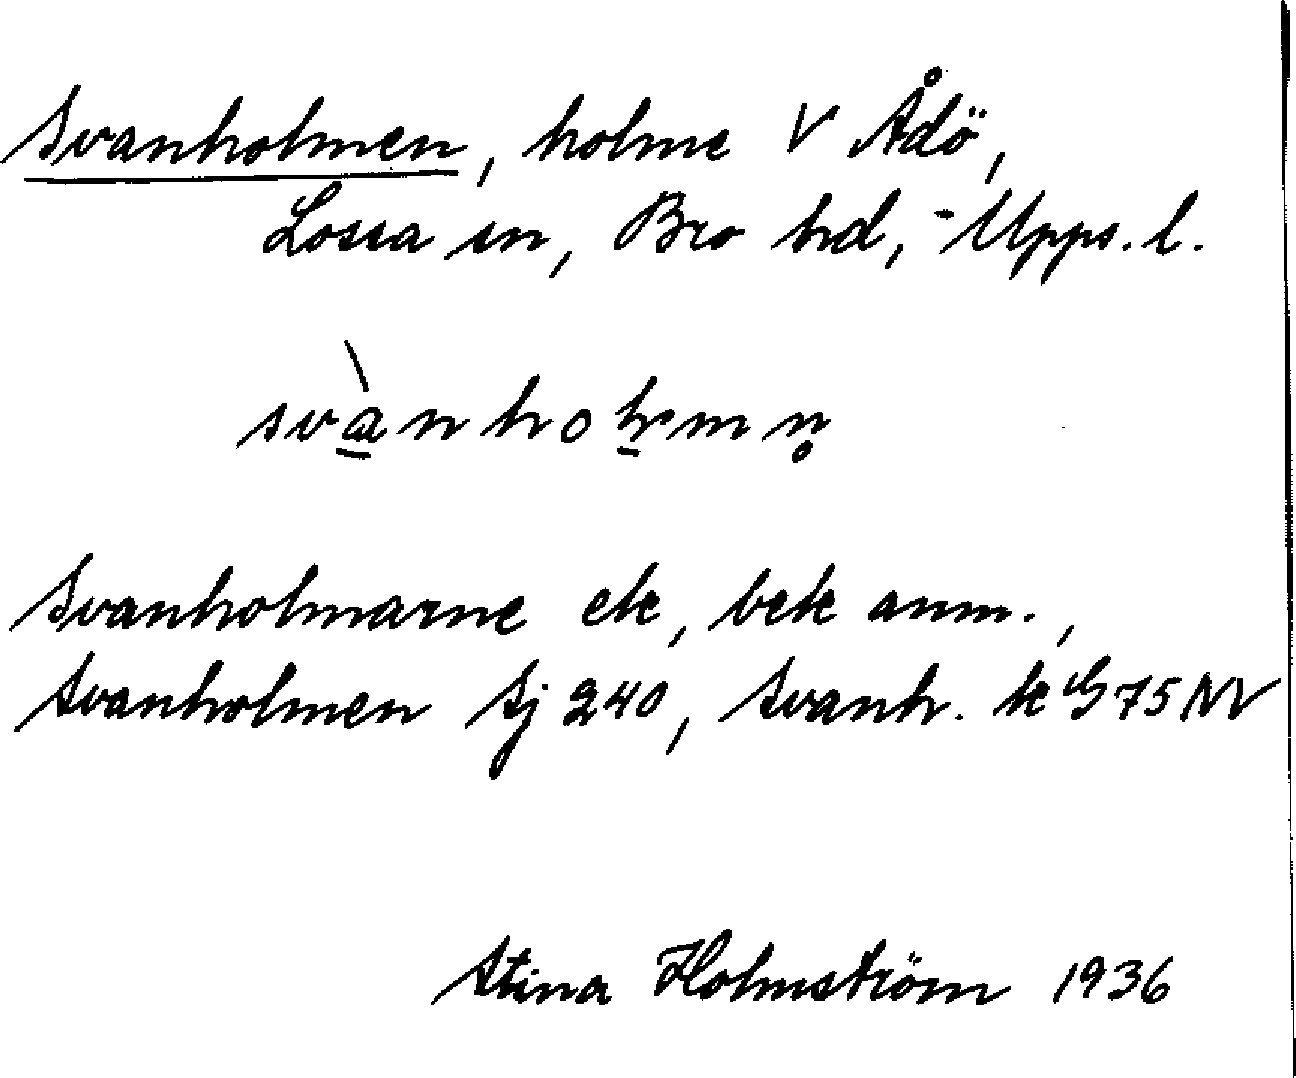 Svanholmen, holme V Ådö,
Lossa sn, Bro hd, Upps. l.
svànholmn̥
Svanholmarne ek, bek anm.,
Svanholmen Sj 240, Svanh. k G 75 NV
Stina Holmström 1936